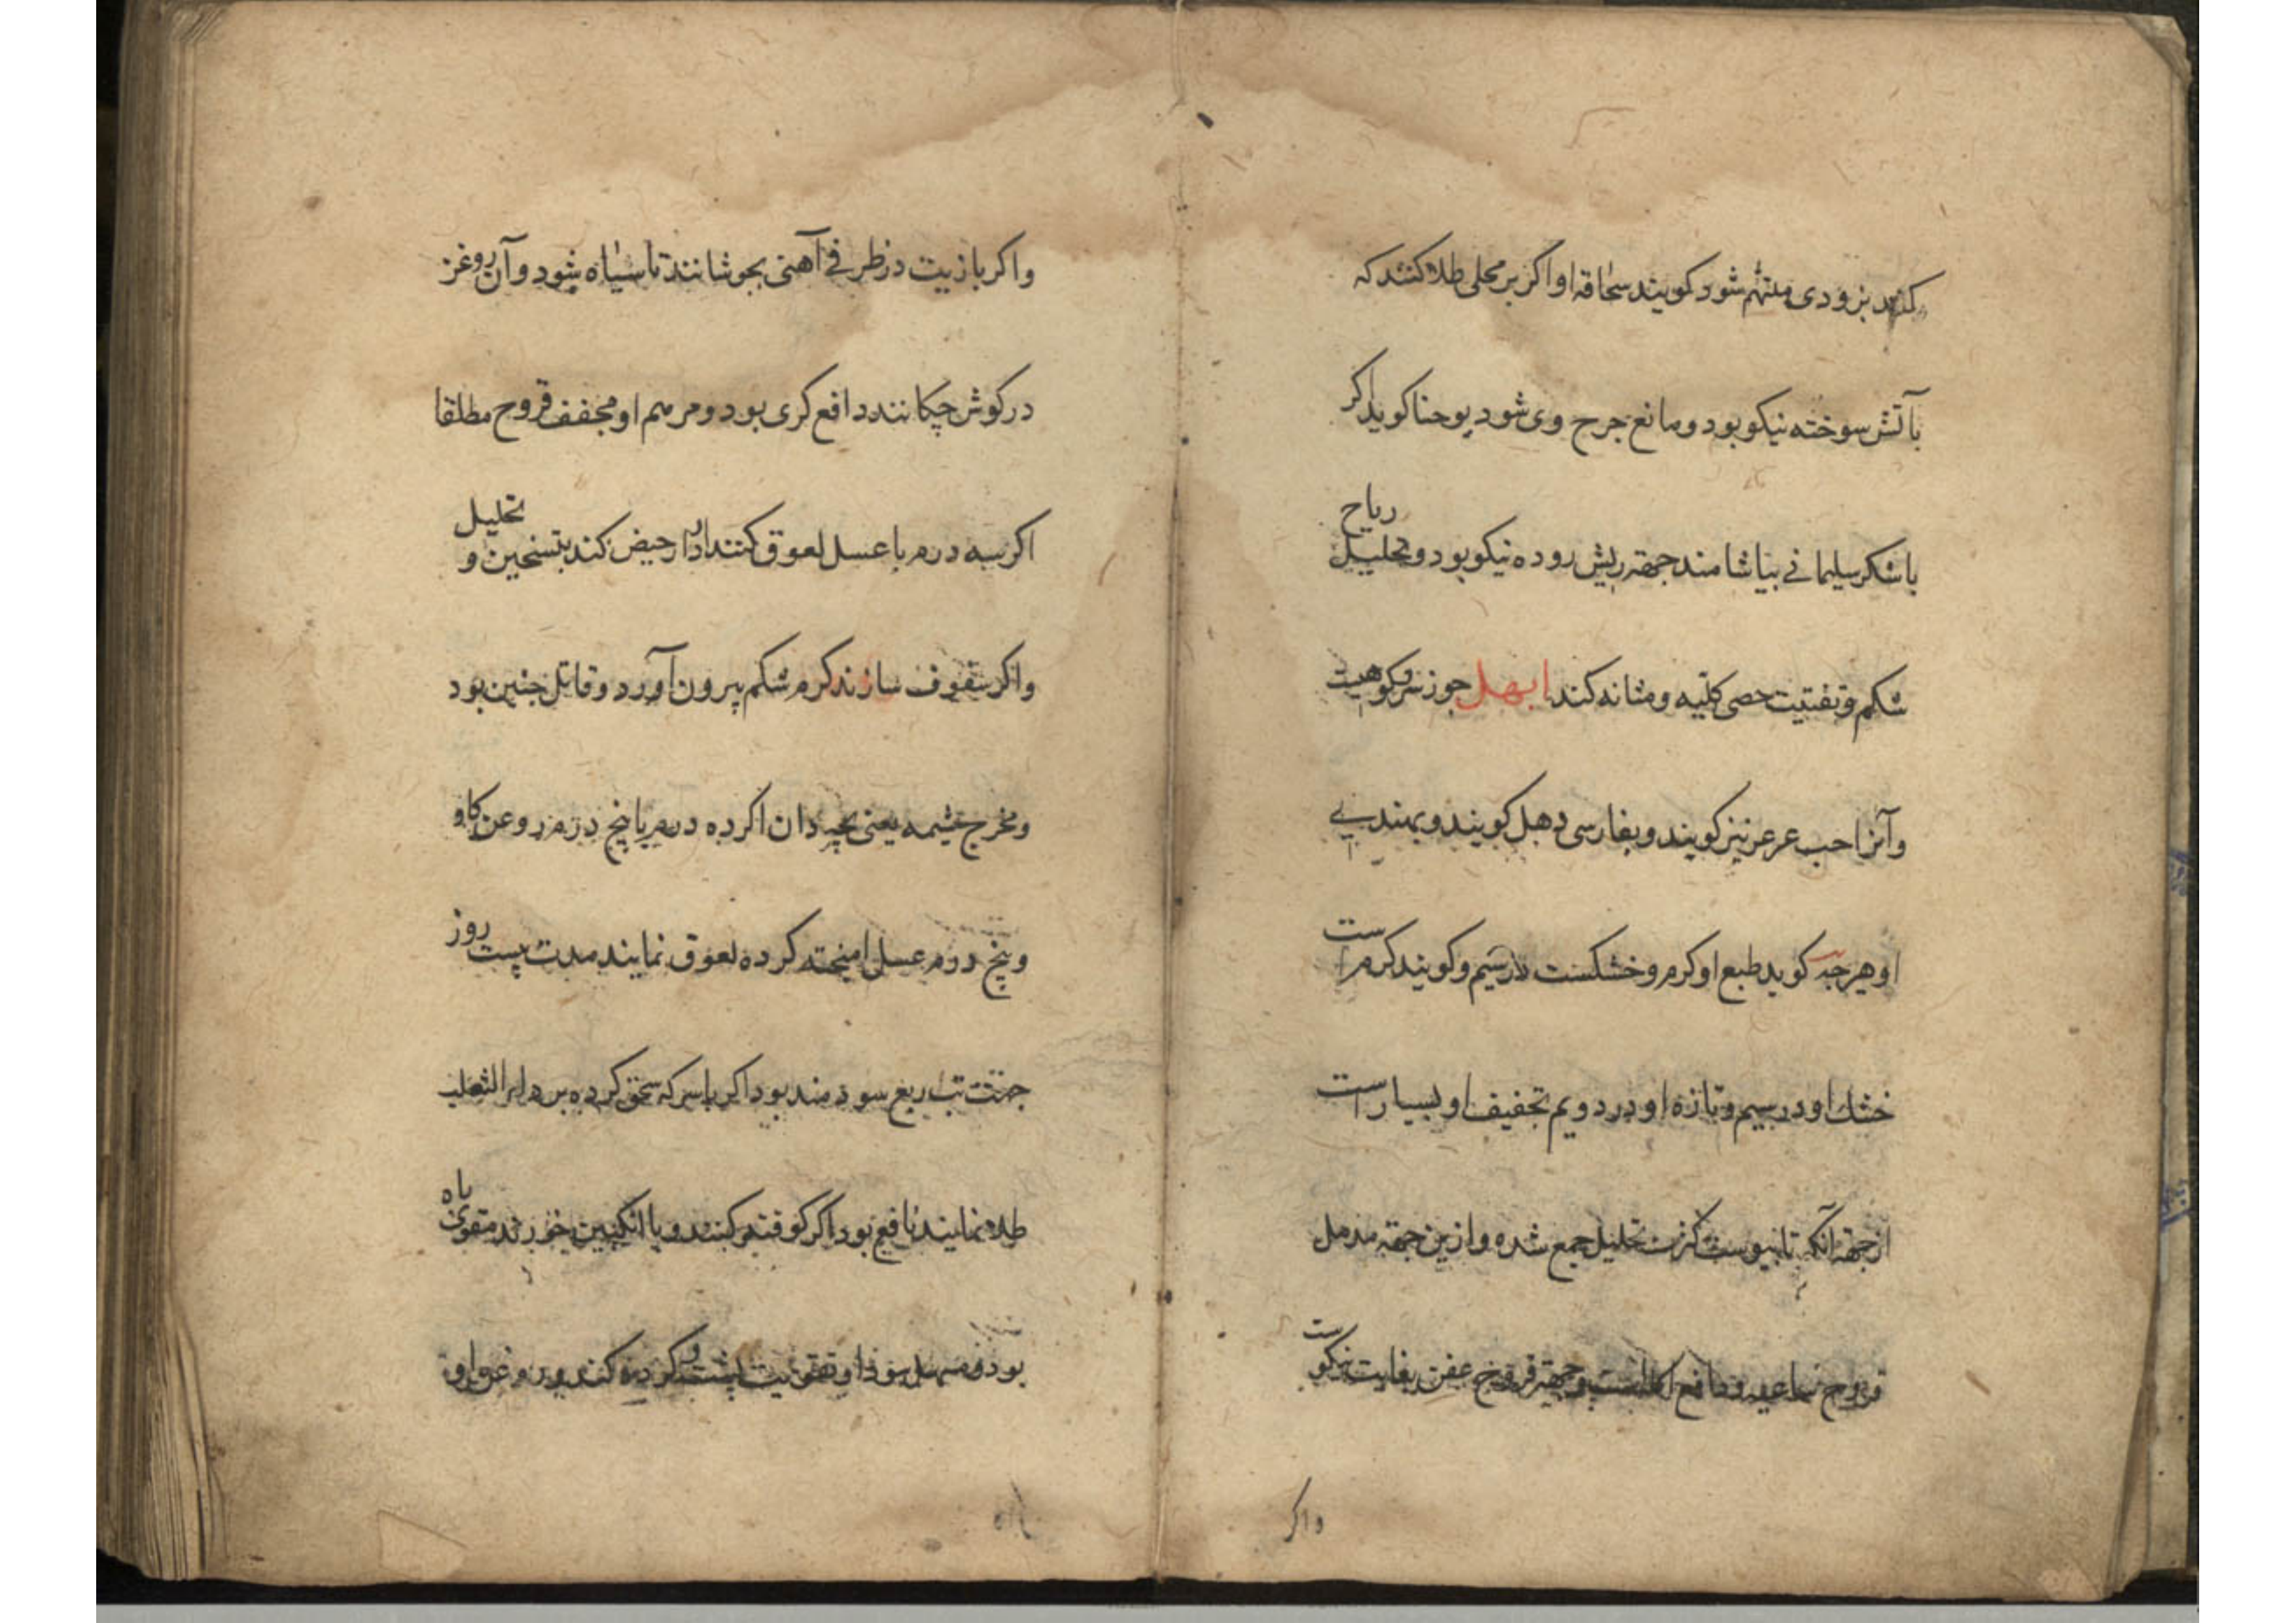 کنند بزودی ملتئم شود کویند سحاقه او اکر بر محلی طلا کنند که
بآتش سوخته نیکو بود و مانع جرح وی شود یوحنا کوید اکر
با شکر سلیمانی بیاشامند جهة ریش روده نیکو بود و تحلیل ریاح
شکم و تفتیت حصی کلیه و مثانه کند ابهل جوز سرو کوهیست
و آنرا حب عرعر نیز کویند و بفارسی دهل کویند و بهندی
او هرچه کوید طبع او کرم و خشکست در سیم و کویند کرم است
خشک او در سیم و تازه او در دویم تجفیف او بسیار است
از جهة آنکه تا یبوست کزت تحلیل جمع شده و ازین جهة مدمل
قروح ساعیه و دافع اکله است و جهة قروح عفن بغایت نیکوست
واکر
واکر بازیت در ظرفی آهنی بجوشانند تا سیاه شود و آن روغن
در کوش چکانند دافع کری بود و مرهم او مجفف قروح مطلقا
اکر سه درم با عسل لعوق کنند ادرار حیض کند بتسخین و تحلیل
واکر سفوف سازند کرم شکم بیرون آورد و قاتل جنین بود
و مخرج مشیمه یعنی بچه دان اکر ده درم با پنج درم روعن کاو
و پنج درم عسل امیخته کرده لعوق نمایند مدت بیست روز
جهت تب ربع سودمند بود اکر باسرکه سحق کرده بر داء الثعلب
طلا نمایند نافع بود اکر کوفته کنند و با انکبین خورند مقوی باه
بود و مسهل سودا و تقویت پشت و کرده کند و روغن او